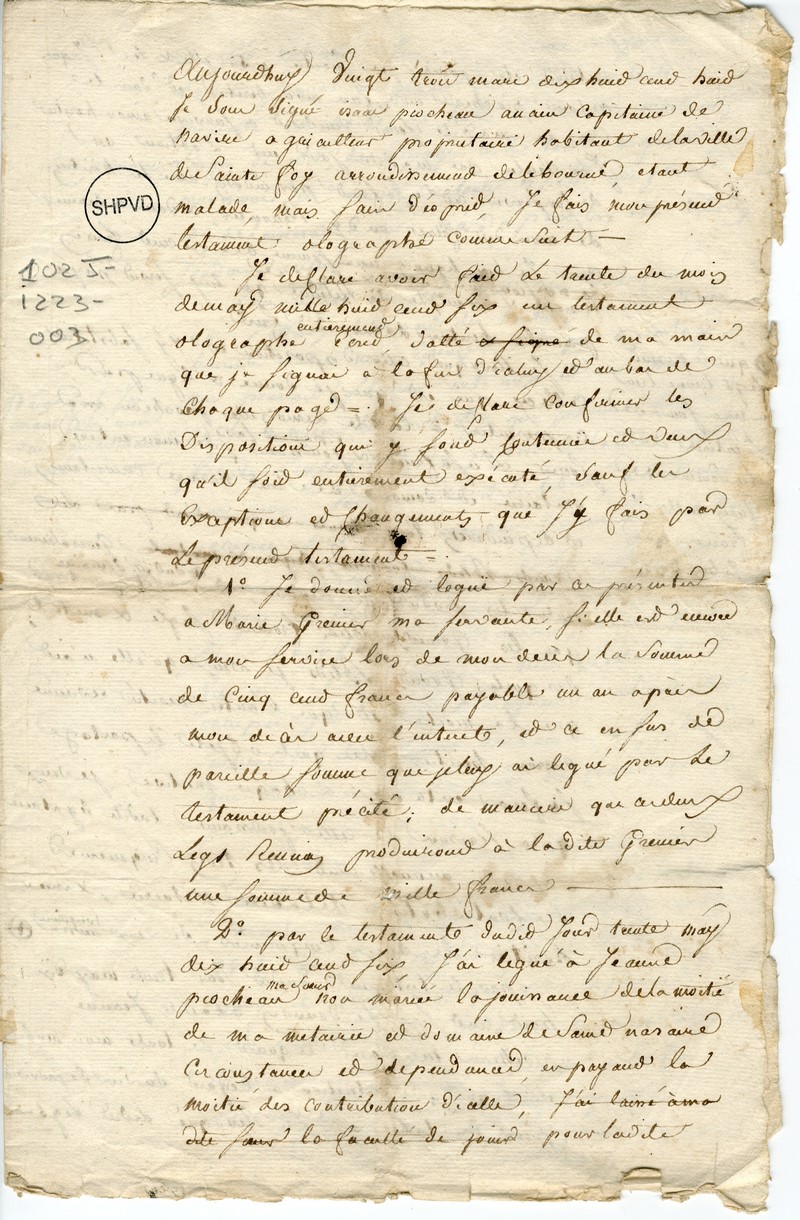 Aujourdhuy Vuigt trois mars dix huid cend huid
Je Sous Signé isaac piocheau ancien Capitaine de
Navire agriculteur propriétaire habitant de la ville
de Sainte foy arrondissement de libourne etant
malade, mais sain d'esprid, Je fais mon présend
testament olographe comme suit —
SHPVD
102 J-
1223-
003
Je declare avoir faid le trente du mois
de may mille huid cend six un testament
olographe entièremend écrid, datté & signé de ma main
que je signai à la fin d'icaluy et au bas de
Chaque page =. Je declare confirmer les
Dispositions qui y sond contenues et veux
qu'il soid entièrement exécuté, Sauf les
Exceptions ed Changements que J'y fais par
Le présend testament =.
1º. Je donne ed legue par ce présented
a Marie Grenier ma servante, si elle est encore
a mon service lors de mon decès la Somme
de Cinq cend francs payable un an après
mon decès avec l'interet, et ce en sus de
pareille somme que je luy ai legué par Le
testament précité; de maniere que ces deux
Legs Reunis produirond à la dite Grenier
une somme de Mille francs —
2º. par le testament dudid Jour trente may
dix huid cend six J'ai legué à Jeanne
piocheau ma soeur non mariée la jouissance de la moitié
de ma metairie ed domaine de Saind nazaire
Circonstances ed dependances, en payand la
moitié des contribution d'icelle, J'ai laissé à ma
dite soeur la faculté de jouir pour ladite